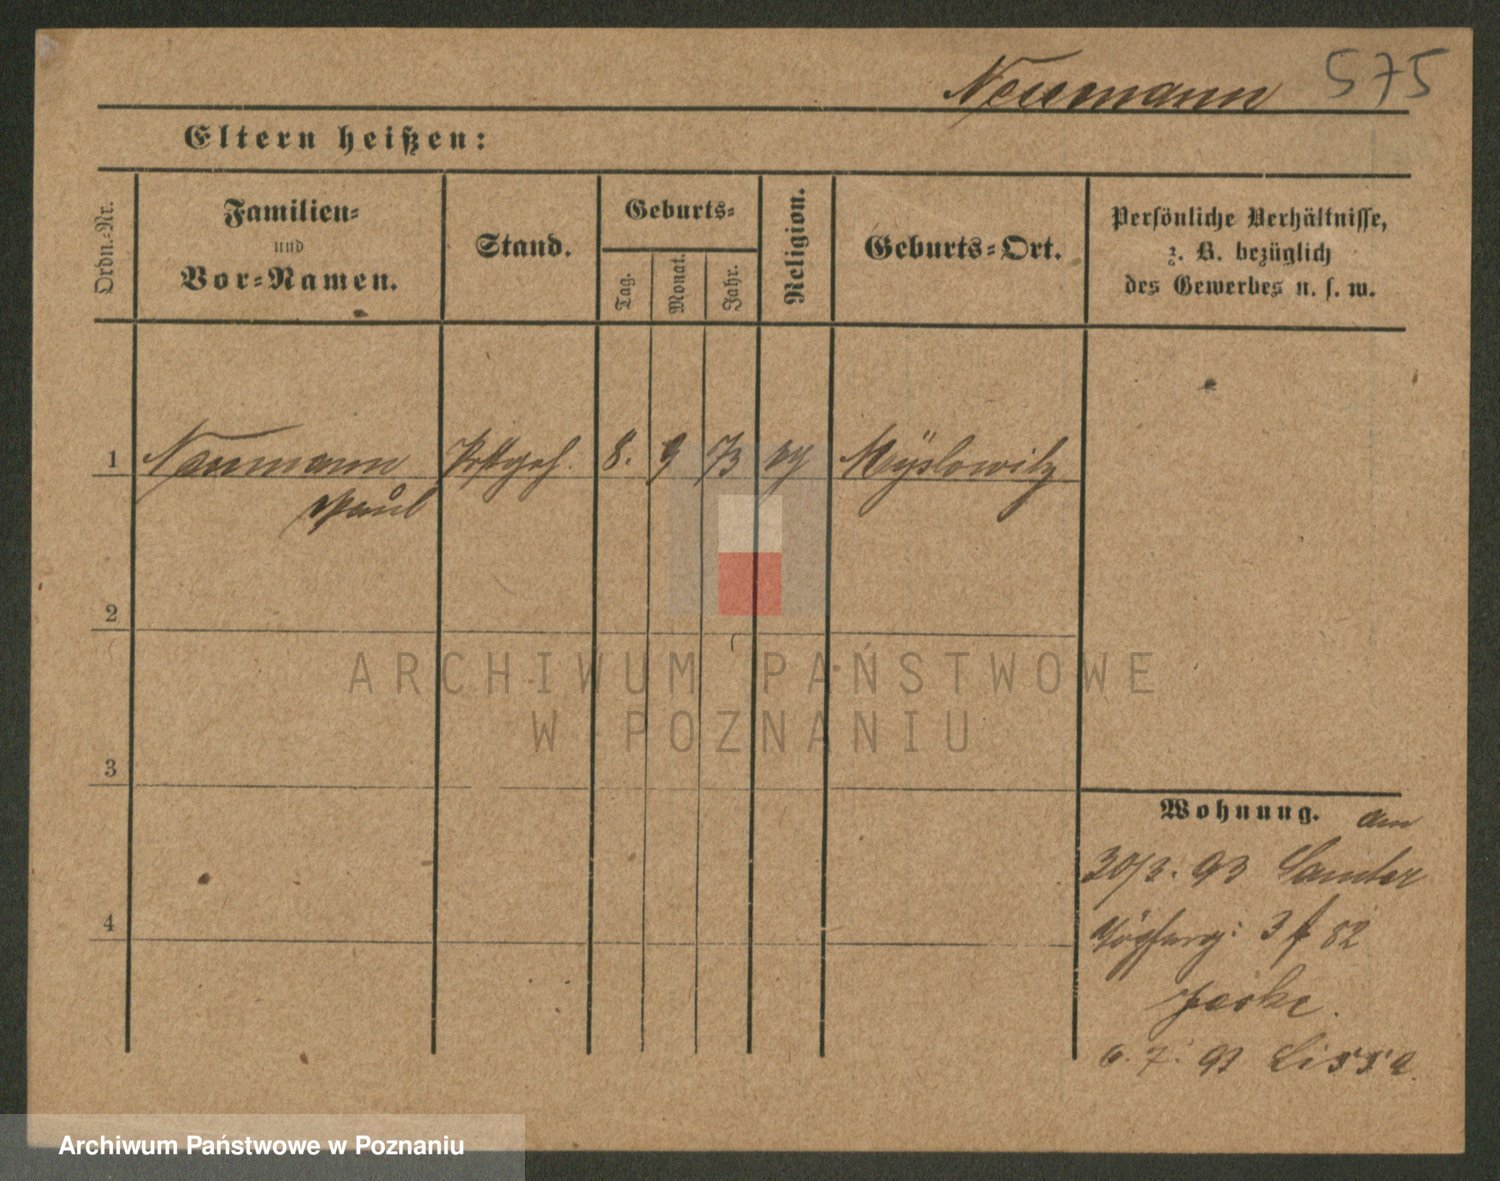 Neumann 575
Eltern heißen:
Ordn.-Nr.
Familien-
und
Vor-Namen.
Stand.
Geburts-
Tag.
Monat.
Jahr.
Religion.
Geburts-Ort.
Persönliche Verhältnisse,
z. B. bezüglich
des Gewerbes u. s. w.
1 Neumann 8. 9 73 Myslowitz
Paul
2
3
4
Wohnung. am
30/3. 93 Samter
3 82
6. 7. 93 Lissa
ARCHIWUM PAŃSTWOWE
W POZNANIU
Archiwum Państwowe w Poznaniu